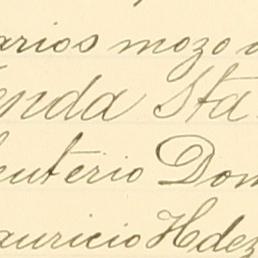 arios mozo d
enda Sta
euterio Dom
auricio Hdez